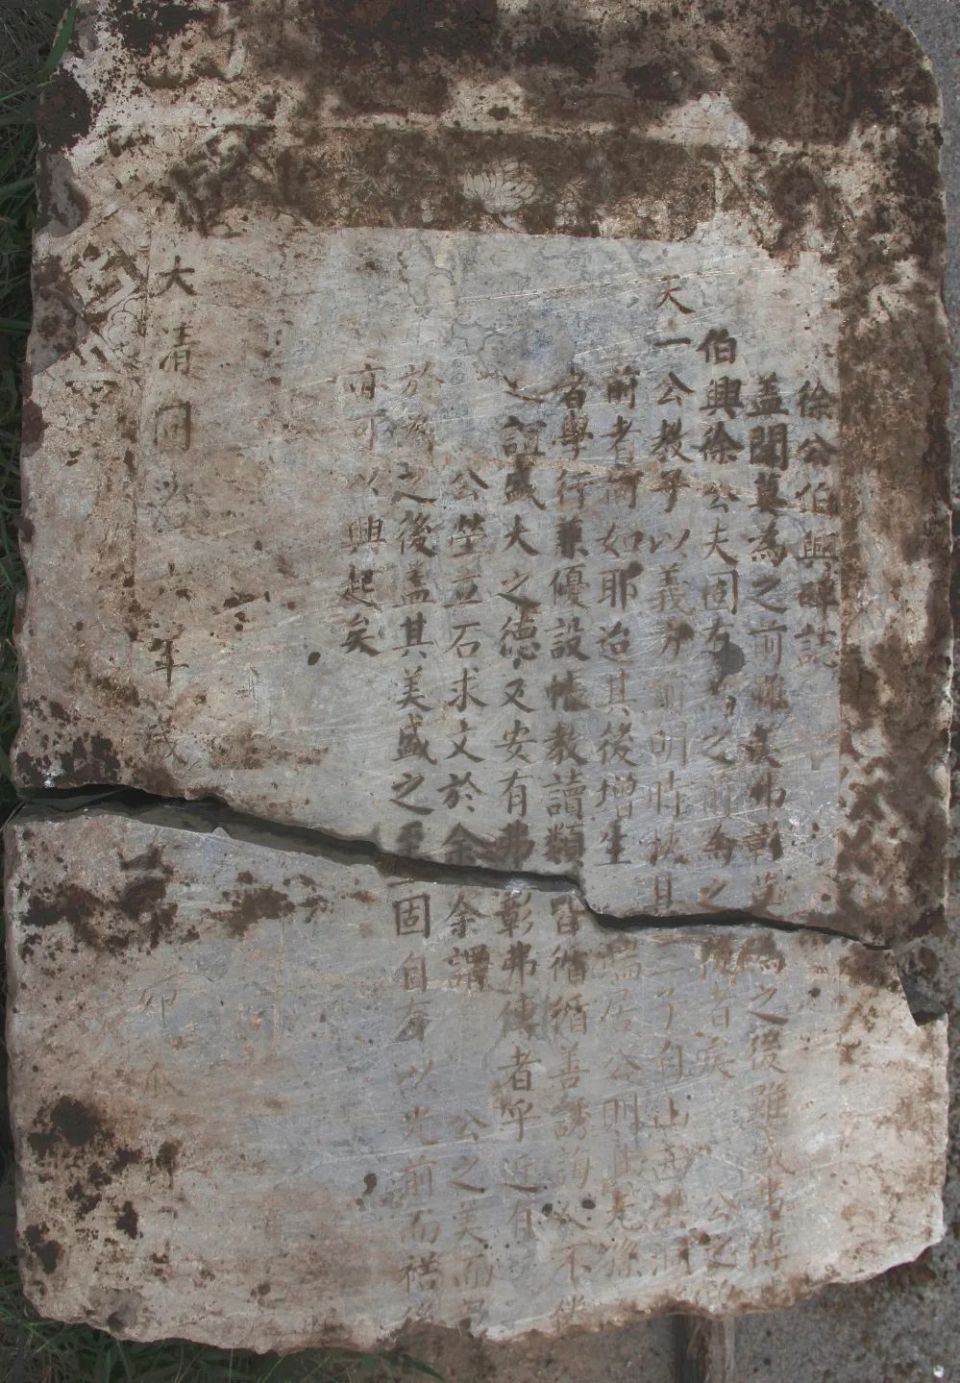 徐公伯興碑誌
蓋聞莫為之前雖美弗彰莫為之後雖盛弗傳
伯興徐公夫固有為之前為之後者矣 公之
天一公教子以義方前明時挾其三子自山西洪洞
前者何如耶迨其後增生 端居公則其先
者學行兼優設帳教讀類皆循循善誘誨人不
之誼盛大之德又安有弗彰弗傳者乎近有
公塋立石求文於余余謂 公之美而
於 之後蓋其美盛之至固自有以光前而
亦可以興起矣
大清同 年歲 卯